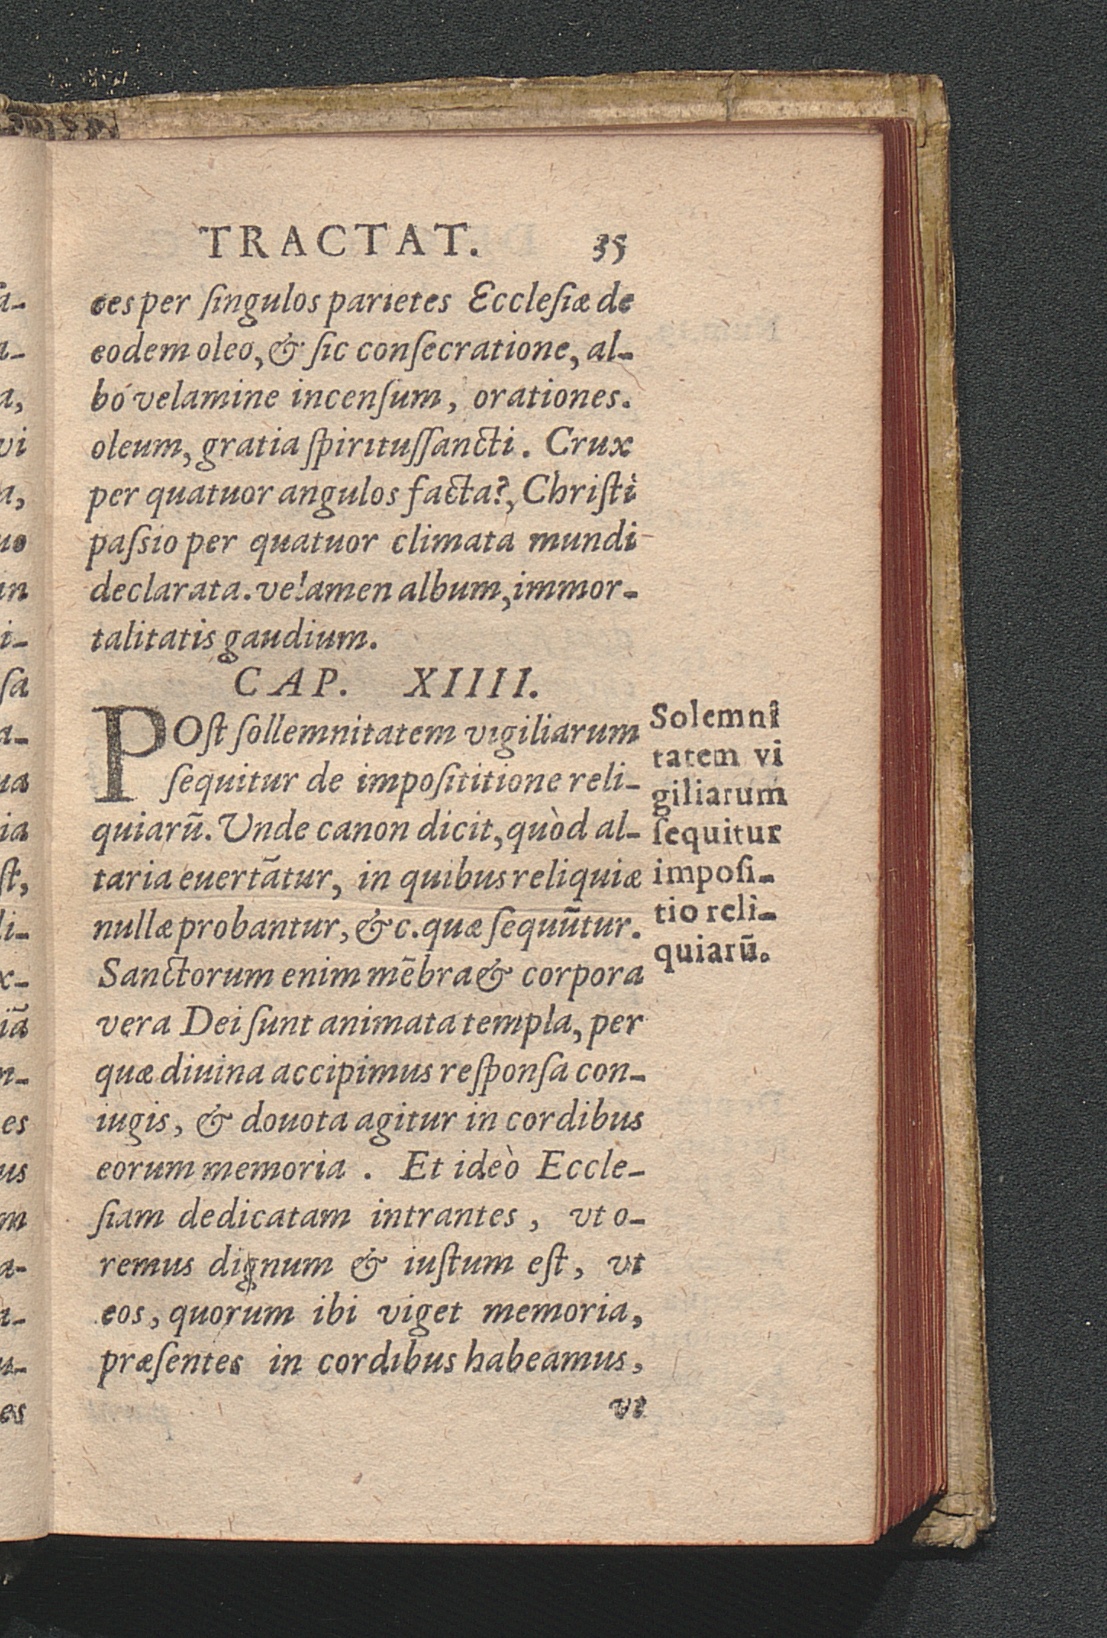 TRACTAT. 35
ces per ſingulos parietes Eccleſiæ de
eodem oleo, & ſic conſecratione, al-
bó velamine incenſum, orationes.
oleum, gratia ſpirituſſancti. Crux
per quatuor angulos facta?, Chriſti
paſsio per quatuor climata mundi
declarata. velamen album, immor-
talitatis gaudium.
CAP. XIIII.
POſt ſollemnitatem vigiliarum
ſequitur de impoſititione reli-
quiarū. Unde canon dicit, quòd al-
taria euertātur, in quibus reliquiæ
nullæ probantur, &c. quæ ſequūtur.
Sanctorum enim mēbra & corpora
vera Dei ſunt animata templa, per
quæ diuina accipimus reſponſa con-
iugis, & douota agitur in cordibus
eorum memoria. Et ideò Eccle-
ſiam dedicatam intrantes, vt o-
remus dignum & iuſtum eſt, vt
eos, quorum ibi viget memoria,
præſentes in cordibus habeamus,
vt
Solemni
tatem vi
giliarum
ſequitur
impoſi-
tio reli-
quiarū.